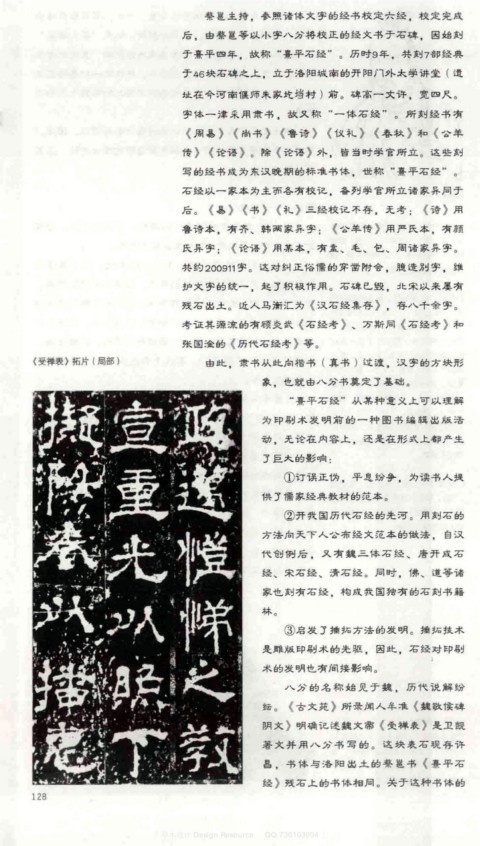 蔡邕主持，参照诸体文字的经书校定六经，校定完成
后，由蔡邕等以小字八分将校正的经文书于石碑，因始刻
于熹平四年，故称“熹平石经”。历时9年，共刻7部经典
于46块石碑之上，立于洛阳城南的开阳门外太学讲堂（遗
址在今河南偃师朱家圪垱村）前。碑高一丈许，宽四尺。
字体一律采用隶书，故又称“一体石经”。所刻经书有
《周易》《尚书》《鲁诗》《仪礼》《春秋》和《公羊
传》《论语》。除《论语》外，皆当时学官所立。这些刻
写的经书成为东汉晚期的标准书体，世称“熹平石经”。
石经以一家本为主而各有校记，备列学官所立诸家异同于
后。《易》《书》《礼》三经校记不存，无考；《诗》用
鲁诗本，有齐、韩两家异字；《公羊传》用严氏本，有颜
氏异字；《论语》用某本，有盍、毛、包、周诸家异字。
共约200911字。这对纠正俗儒的穿凿附会，臆造别字，维
护文字的统一，起了积极作用。石碑已毁，北宋以来屡有
残石出土。近人马衡汇为《汉石经集存》，存八千余字。
考证其源流的有顾炎武《石经考》、万斯同《石经考》和
张国淦的《历代石经考》等。
《受禅表》拓片（局部）
由此，隶书从此向楷书（真书）过渡，汉字的方块形
象，也就由八分书奠定了基础。
“熹平石经”从某种意义上可以理解
为印刷术发明前的一种图书编辑出版活
动，无论在内容上，还是在形式上都产生
了巨大的影响：
①订误正伪，平息纷争，为读书人提
供了儒家经典教材的范本。
②开我国历代石经的先河。用刻石的
方法向天下人公布经文范本的做法，自汉
代创例后，又有魏三体石经、唐开成石
经、宋石经、清石经。同时，佛、道等诸
家也刻有石经，构成我国独有的石刻书籍
林。
③启发了捶拓方法的发明。捶拓技术
是雕版印刷术的先驱，因此，石经对印刷
术的发明也有间接影响。
八分的名称始见于魏，历代说解纷
纭。《古文苑》所录闻人牟准《魏敬侯碑
阴文》明确记述魏文帝《受禅表》是卫觊
著文并用八分书写的。这块表石现存许
昌，书体与洛阳出土的蔡邕书《熹平石
经》残石上的书体相同。关于这种书体的
宣重光以照下
128